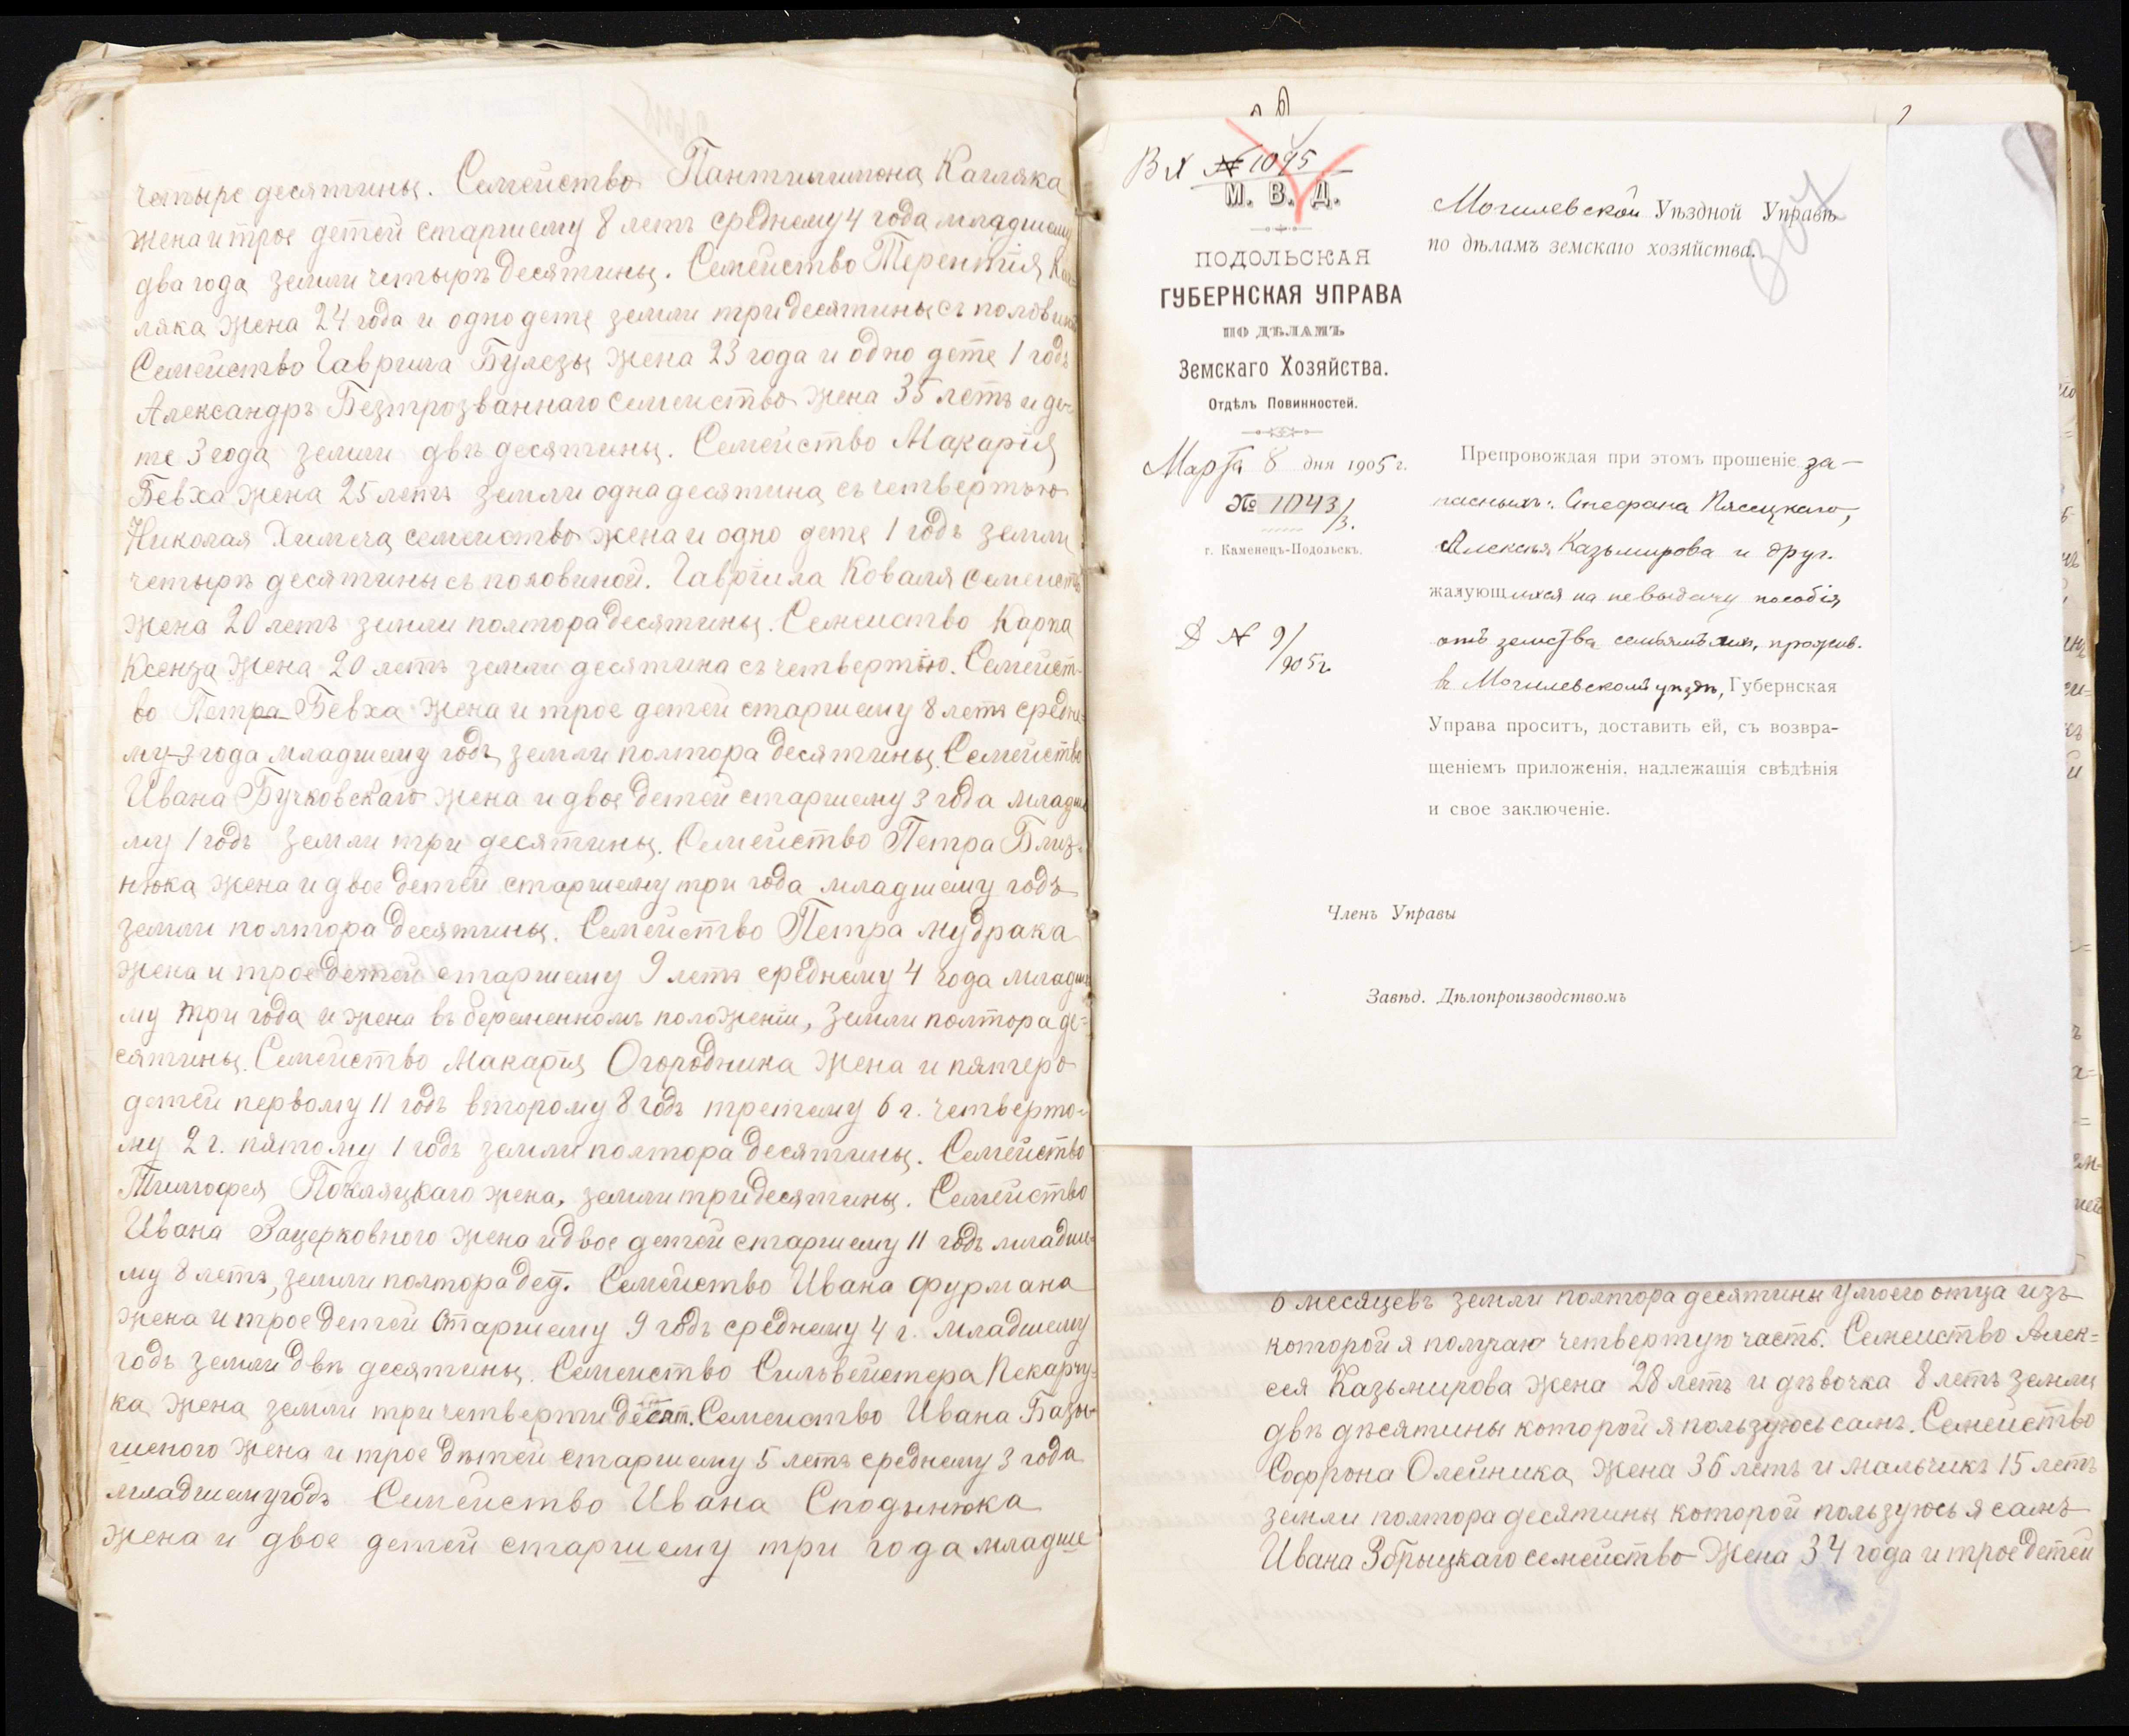 четыре десятины. Семейство Пантилимона Катляка
жена и трое детей старшему 8 летъ среднему 4 года младшему
два года земли четырѣ десятины. Семейство Терентія
ляка жена 24 года и одно дете земли три десятины съ половин
Семейство Гаврила Булезы жена 23 года и одно дете 1 годъ
Александръ Безпрозваннаго семейство жена 35 летъ и де-
те 3 года земли двѣ десятины. Семейство Макарія
Бевха жена 25 летъ земли одна десятина съ четвертью
Николая Химеча семейство жена и одно дете 1 годъ земли
четырѣ десятины съ половиной. Гавріила Коваля семейств
жена 20 летъ земли полтора десятины. Семейство Карпа
Ксенза жена 20 летъ земли десятина съ четвертью. Семейст-
во Петра Бевха жена и трое детей старшему 8 летъ средне-
му 3 года младшему годъ земли полтора десятины. Семейство
Ивана Бучковскаго жена и двое детей старшему 3 года младше
му 1 годъ земли три десятины. Семейство Петра Близ-
нюка жена и двое детей старшему три года младшему годъ
земли полтора десятины. Семейство Петра Мудрака
жена и трое детей старшему 9 летъ среднему 4 года младше
му три года и жена въ беременномъ положеніи, земли полтора де-
сятины. Семейство Макарія Огородника жена и пятеро
детей первому 11 годъ второму 8 годъ третему 6 г. четверто-
му 2 г. пятому 1 годъ земли полтора десятины. Семейство
Тимофея Покляцкаго жена, земли три десятины. Семейство
Ивана Зацерковного жена и двое детей старшему 11 годъ младше-
му 8 летъ, земли полтора дес. Семейство Ивана Фурмана
жена и трое детей старшему 9 годъ среднему 4 г. младшему
годъ земли двѣ десятины. Семейство Сильвейстера Пекарчу-
ка жена земли три четверти десят. Семейство Ивана Базы-
шеного жена и трое дѣтей старшему 5 летъ среднему 3 года
младшему годъ Семейство Ивана Сподынюка
жена и двое детей старшему три года младше
Вх № 1095
М. В. Д.
ПОДОЛЬСКАЯ
ГУБЕРНСКАЯ УПРАВА
ПО ДѢЛАМЪ
Земскаго Хозяйства.
Отдѣлъ Повинностей.
Марта 8 дня 1905 г.
№ 1043/3.
г. Каменецъ-Подольскъ.
Д № 9/905 г.
Могилевской Уѣздной Управѣ
по дѣламъ земскаго хозяйства.
Препровождая при этомъ прошеніе за-
пасныхъ: Стефана Пясецкаго,
Алексѣя Казьмирова и друг.
жалующихся на невыдачу пособія
отъ земства семьямъ ихъ, прожив.
в Могилевскомъ уѣздѣ, Губернская
Управа проситъ, доставить ей, съ возвра-
щеніемъ приложенія, надлежащія свѣдѣнія
и свое заключеніе.
Членъ Управы
Завѣд. Дѣлопроизводствомъ
6 месяцевъ земли полтора десятины у моего отца изъ
которой я получаю четвертую часть. Семейство Алек-
сея Казьмирова жена 28 летъ и дѣвочка 8 летъ земли
двѣ дѣсятины которой я пользуюсь самъ. Семейство
Софрона Олейника жена 36 летъ и мальчикъ 15 летъ
земли полтора десятины которой пользуюсь я самъ
Ивана Збрыцкаго семейство жена 34 года и трое детей